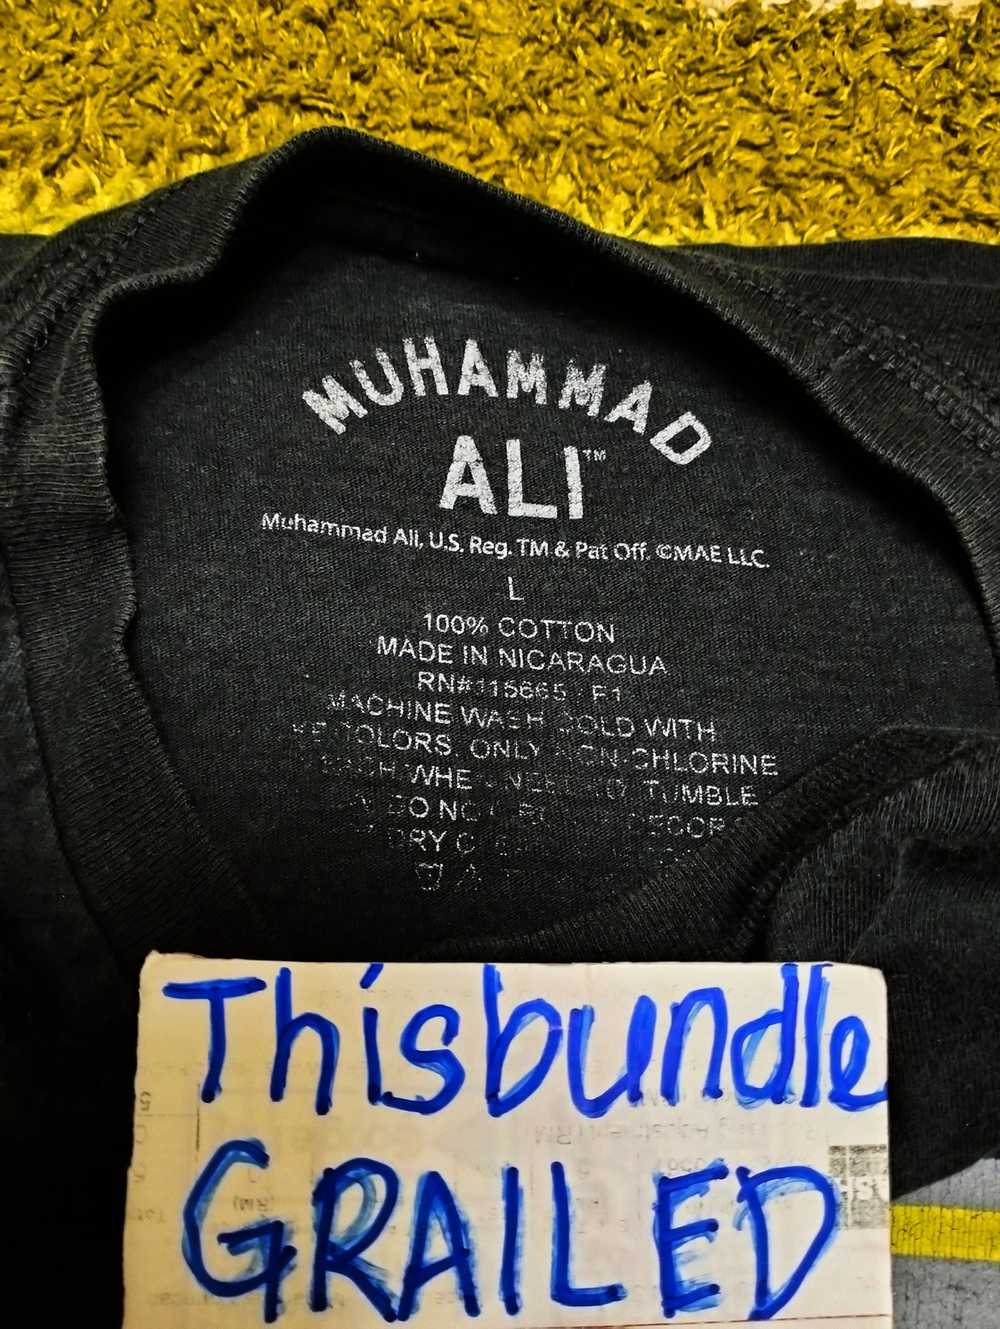 MUHAMMAD
ALI™
Muhammad Ali, U.S. Reg. TM & Pat Off. ©MAE LLC.
L
100% COTTON
MADE IN NICARAGUA
RN#115665 F1
MACHINE WASH COLD WITH
COLORS. ONLY NON-CHLORINE
TUMBLE
DO NO
DRY
Thisbundle
GRAILED